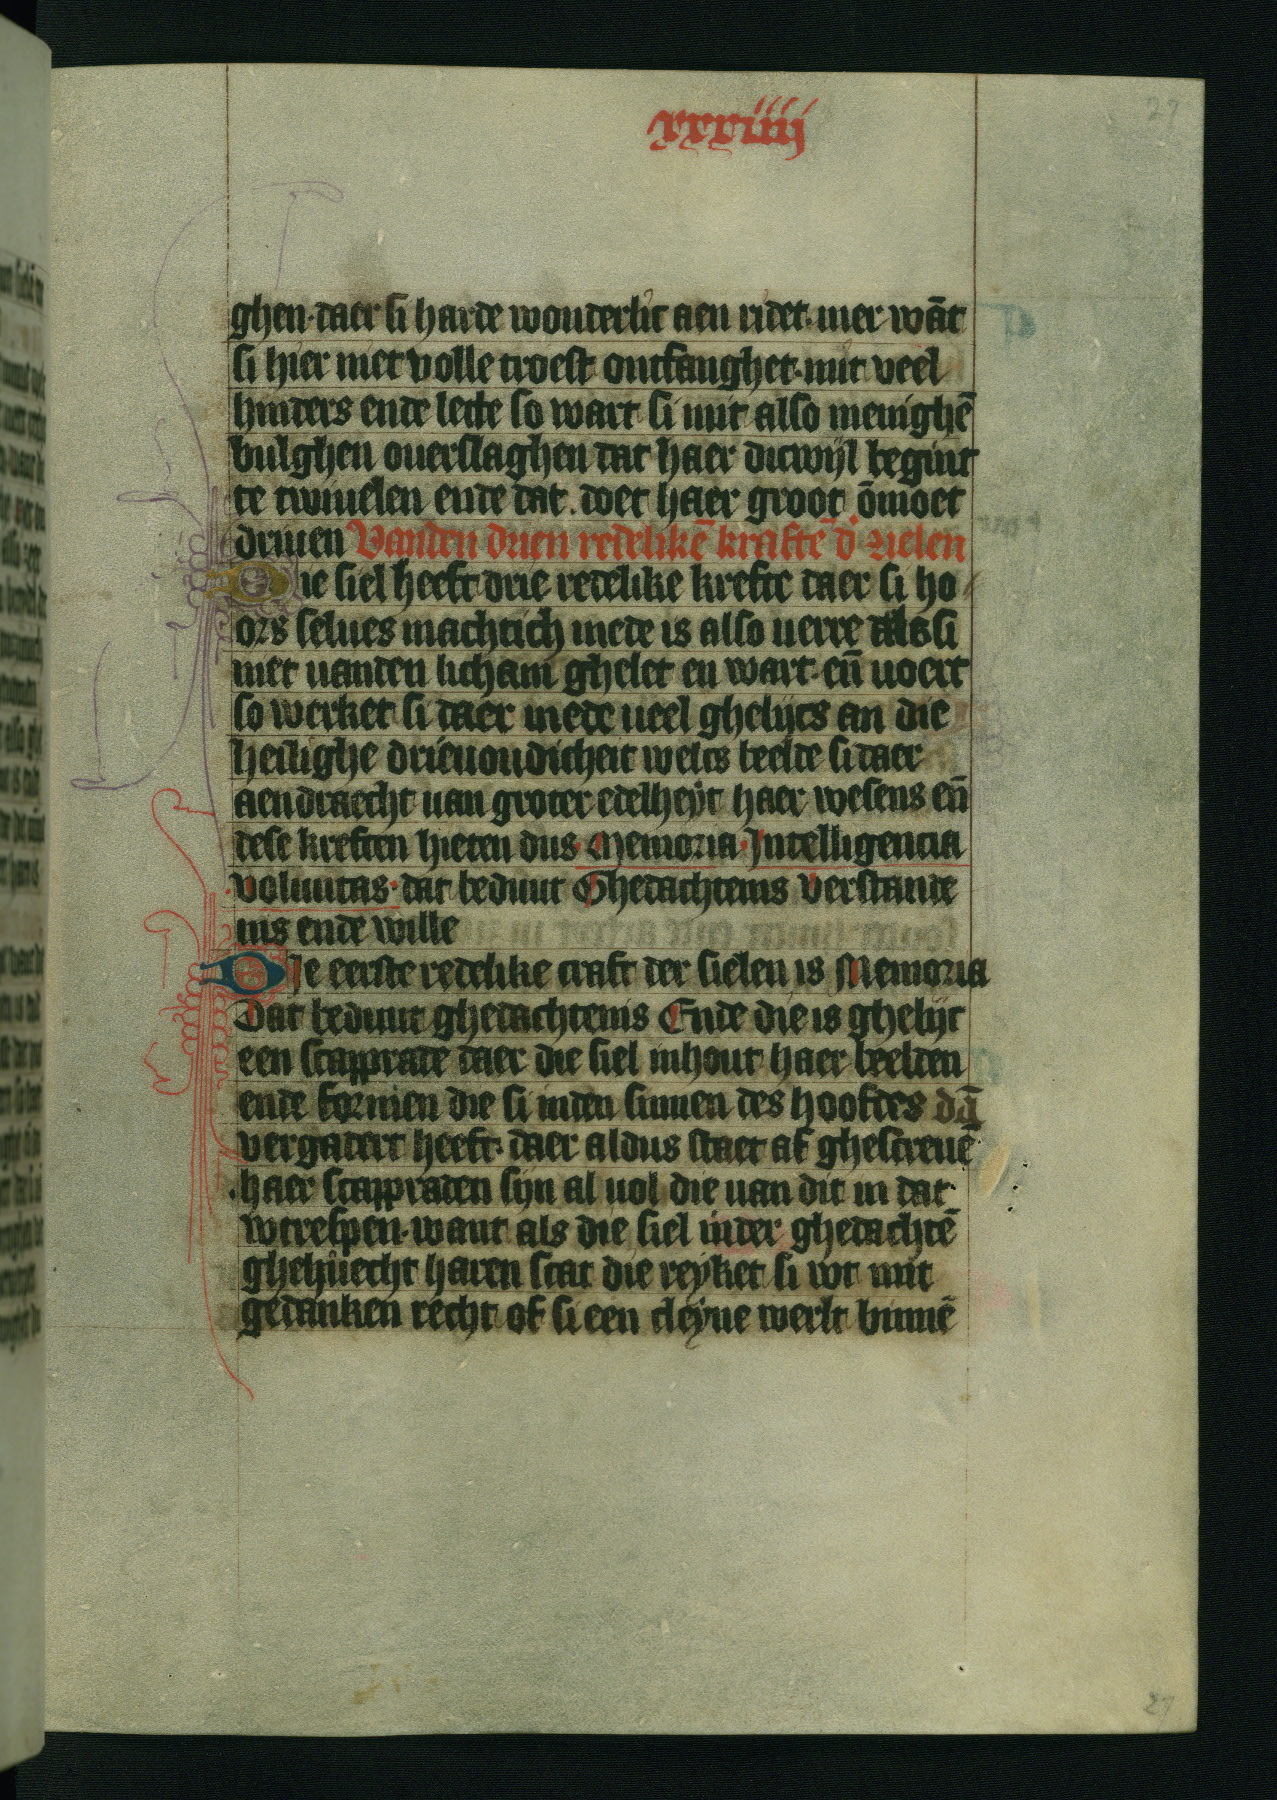 xxxiiij
27
ghen· daer si harde wonderlic aen ridet· mer wāt
si hier niet volle troest ontfanghet· mit veel
hinders ende lette so wart si mit also menighē
bulghen ouerslaghen dat haer dicwijl begint
te twiuelen ende dat doet haer groot ōmoet
driuen Vanden drien redelikē kraftē d' zielen
Die siel heeft drie redelike krefte daer si ho
ors selues machtich mede is also verre als si
niet vanden licham ghelet en wart· eñ voert
so werket si daer mede veel ghelijcs an die
heilighe drieuoudicheit welcs beelde si daer
aendraecht van groter edelheyt haer wesens eñ
dese kreften hieten dus· Memoria· Intelligencia
voluntas· dat beduut Ghedachtenis verstande
nis ende wille
Die eerste redelike craft der sielen is Memoria
Dat beduut ghedachtenis Ende die is ghelijc
een scapprade daer die siel inhout haer beelden
ende formen die si inden sinnen des hooftes dā
vergadert heeft· daer aldus staet af ghescreuē
haer scappraden sijn al vol die van dit in dat
wtrespen· want als die siel inder ghedachtē
ghehuecht haren scat die reyket si wt mit
gedanken recht of si een cleyne werlt binnē
27